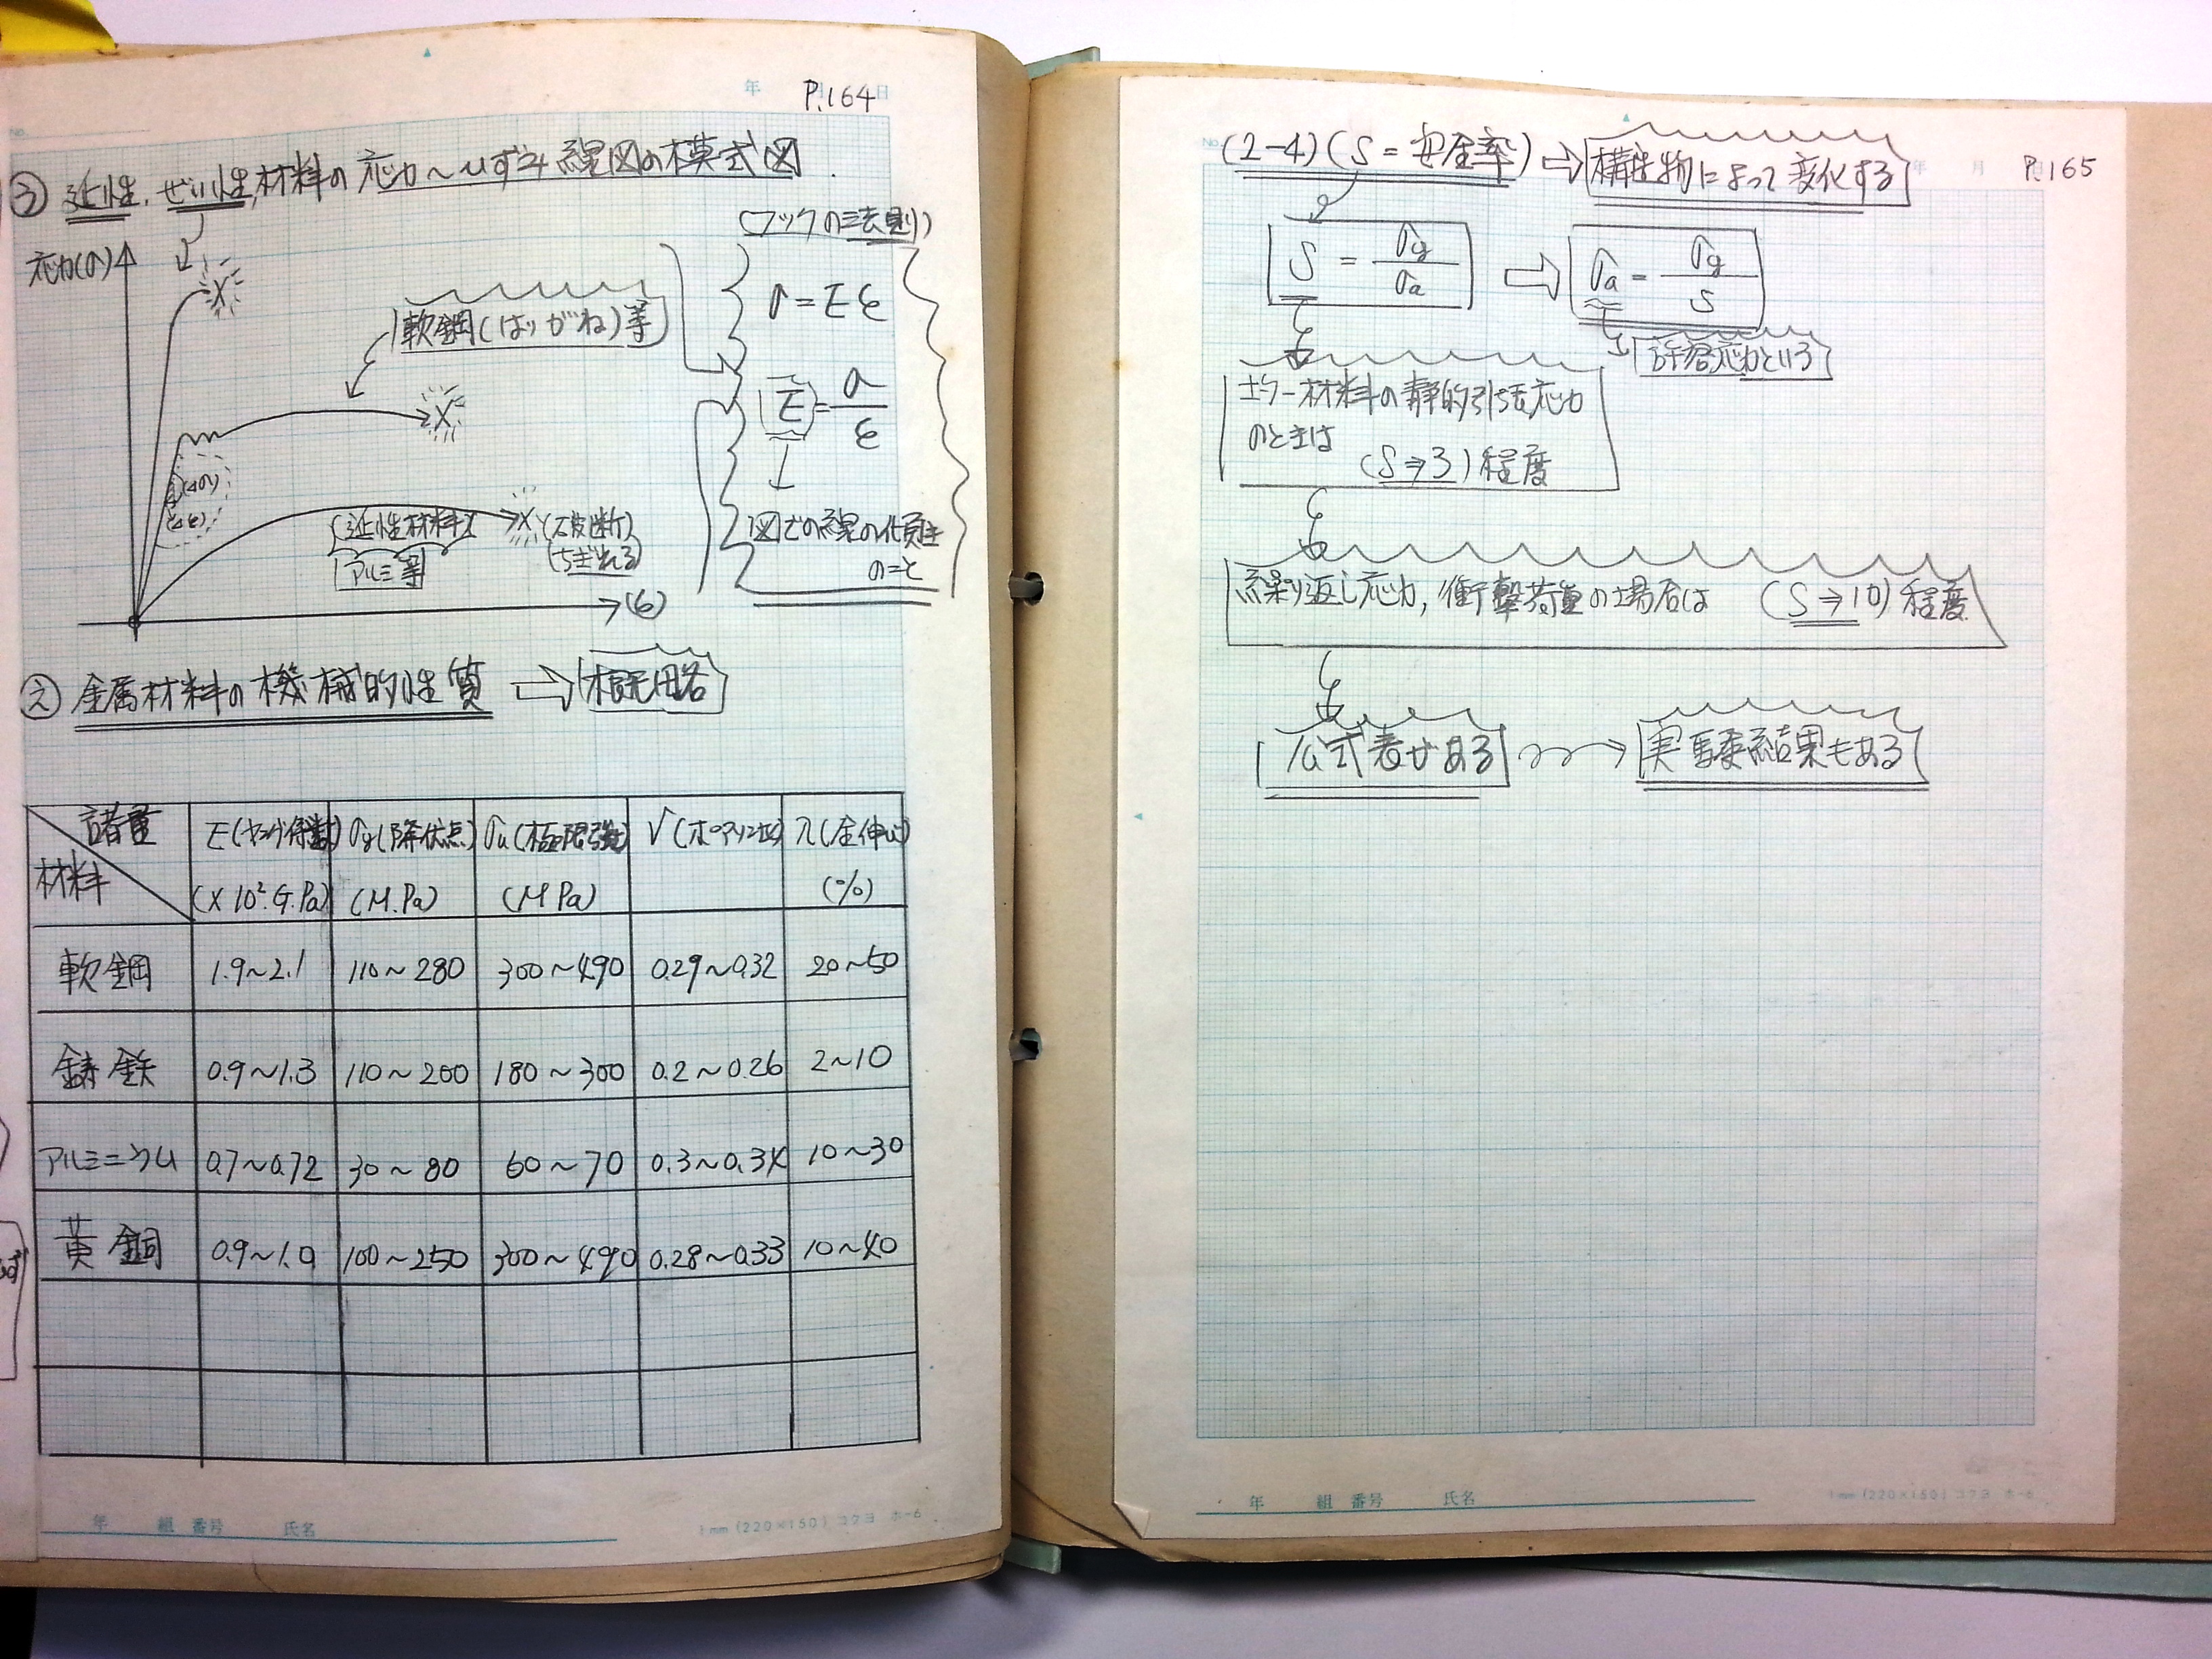 年 日
P.164
No.
う 延性、ぜい性材料の応力〜ひずみ線図の模式図
応力(σ)
軟鋼(はりがね)等
(Δσ)
(Δε)
延性材料
アルミ等
X (破断)
(ちぎれる)
(ε)
(フックの法則)
σ = Eε
E = σ/ε
図での線の傾き
のこと
え 金属材料の機械的性質 ⇒ 概略
諸量
材料
E(ヤング係数) (×10².G.Pa)
σy(降伏点) (M.Pa)
σu(極限強) (MPa)
ν(ポアソン比)
λ(全伸び) (%)
軟鋼 1.9〜2.1 110〜280 300〜490 0.29〜0.32 20〜50
鋳鉄 0.9〜1.3 110〜200 180〜300 0.2〜0.26 2〜10
アルミニウム 0.7〜0.72 30〜80 60〜70 0.3〜0.34 10〜30
黄銅 0.9〜1.0 100〜250 300〜490 0.28〜0.33 10〜40
年 組 番号 氏名
1mm (220×150) コクヨ ホ-6
No. 年 月
P.165
(2-4) (S = 安全率) ⇒ 構造物によって変化する
S = σy/σa ⇒ σa = σy/S
許容応力という
材料の静的引張応力
のときは
(S⇒3)程度
繰り返し応力, 衝撃荷重の場合は (S⇒10)程度
公式表がある → 実験結果もある
年 組 番号 氏名
1mm (220×150) コクヨ ホ-6